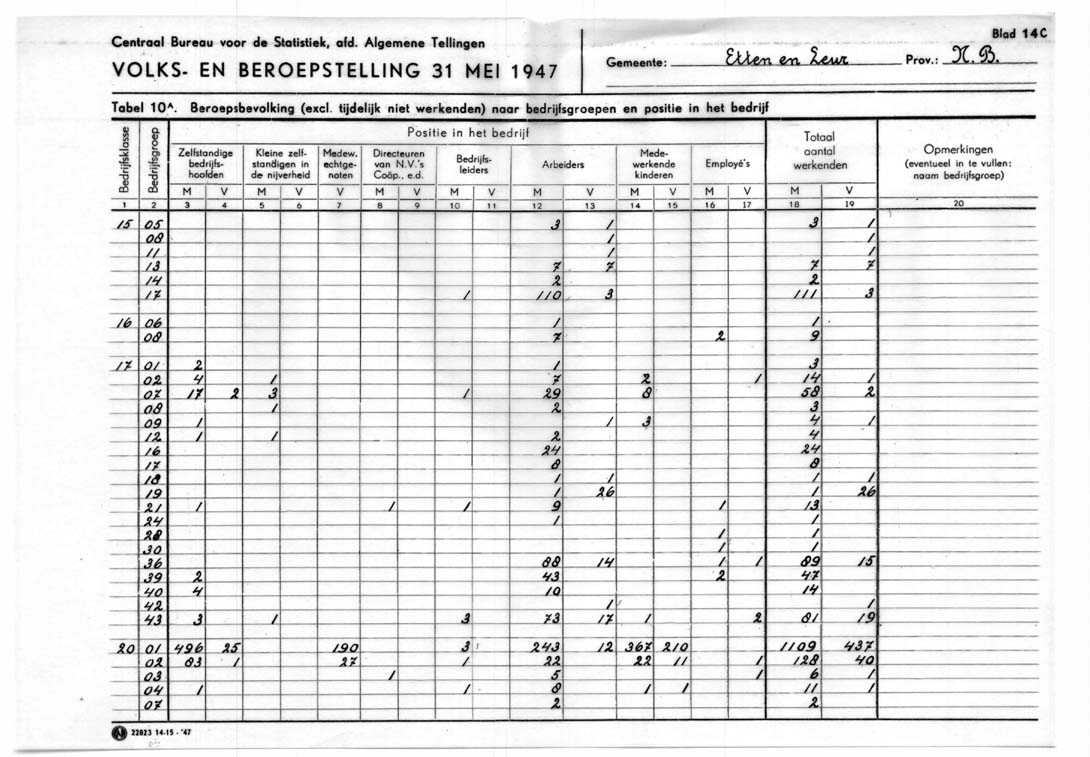 Blad 14C
Centraal Bureau voor de Statistiek, afd. Algemene Tellingen
VOLKS- EN BEROEPSTELLING 31 MEI 1947
Gemeente: Etten en Leur Prov.: N.B.
Tabel 10ᴬ. Beroepsbevolking (excl. tijdelijk niet werkenden) naar bedrijfsgroepen en positie in het bedrijf
Bedrijfsklasse
Bedrijfsgroep
Positie in het bedrijf
Zelfstandige bedrijfs-hoofden
Kleine zelf-standigen in de nijverheid
Medew. echtge-noten
Directeuren van N.V.'s Coöp., e.d.
Bedrijfs-leiders
Arbeiders
Mede-werkende kinderen
Employé's
Totaal aantal werkenden
Opmerkingen (eventueel in te vullen: naam bedrijfsgroep)
M V M V V M V M V M V M V M V M V
1 2 3 4 5 6 7 8 9 10 11 12 13 14 15 16 17 18 19 20
15 05 3 1 3 1
08 1 1
11 1 1
13 7 7 7 7
14 2 2
17 1 110 3 111 3
16 06 1 1
08 7 2 9
17 01 2 1 3
02 4 1 7 2 1 14 1
07 17 2 3 1 29 8 58 2
08 1 2 3
09 1 1 3 4 1
12 1 1 2 4
16 24 24
17 8 8
18 1 1 1 1
19 1 26 1 26
21 1 1 1 9 1 13
24 1 1
28 1 1
30 1 1
36 88 14 1 1 89 15
39 2 43 2 47
40 4 10 14
42 1 1
43 3 1 3 73 17 1 2 81 19
20 01 496 25 190 3 243 12 367 210 1109 437
02 83 1 27 1 22 22 11 1 128 40
03 1 5 1 6 1
04 1 1 8 1 1 11 1
07 2 2
22823 14-15 - '47